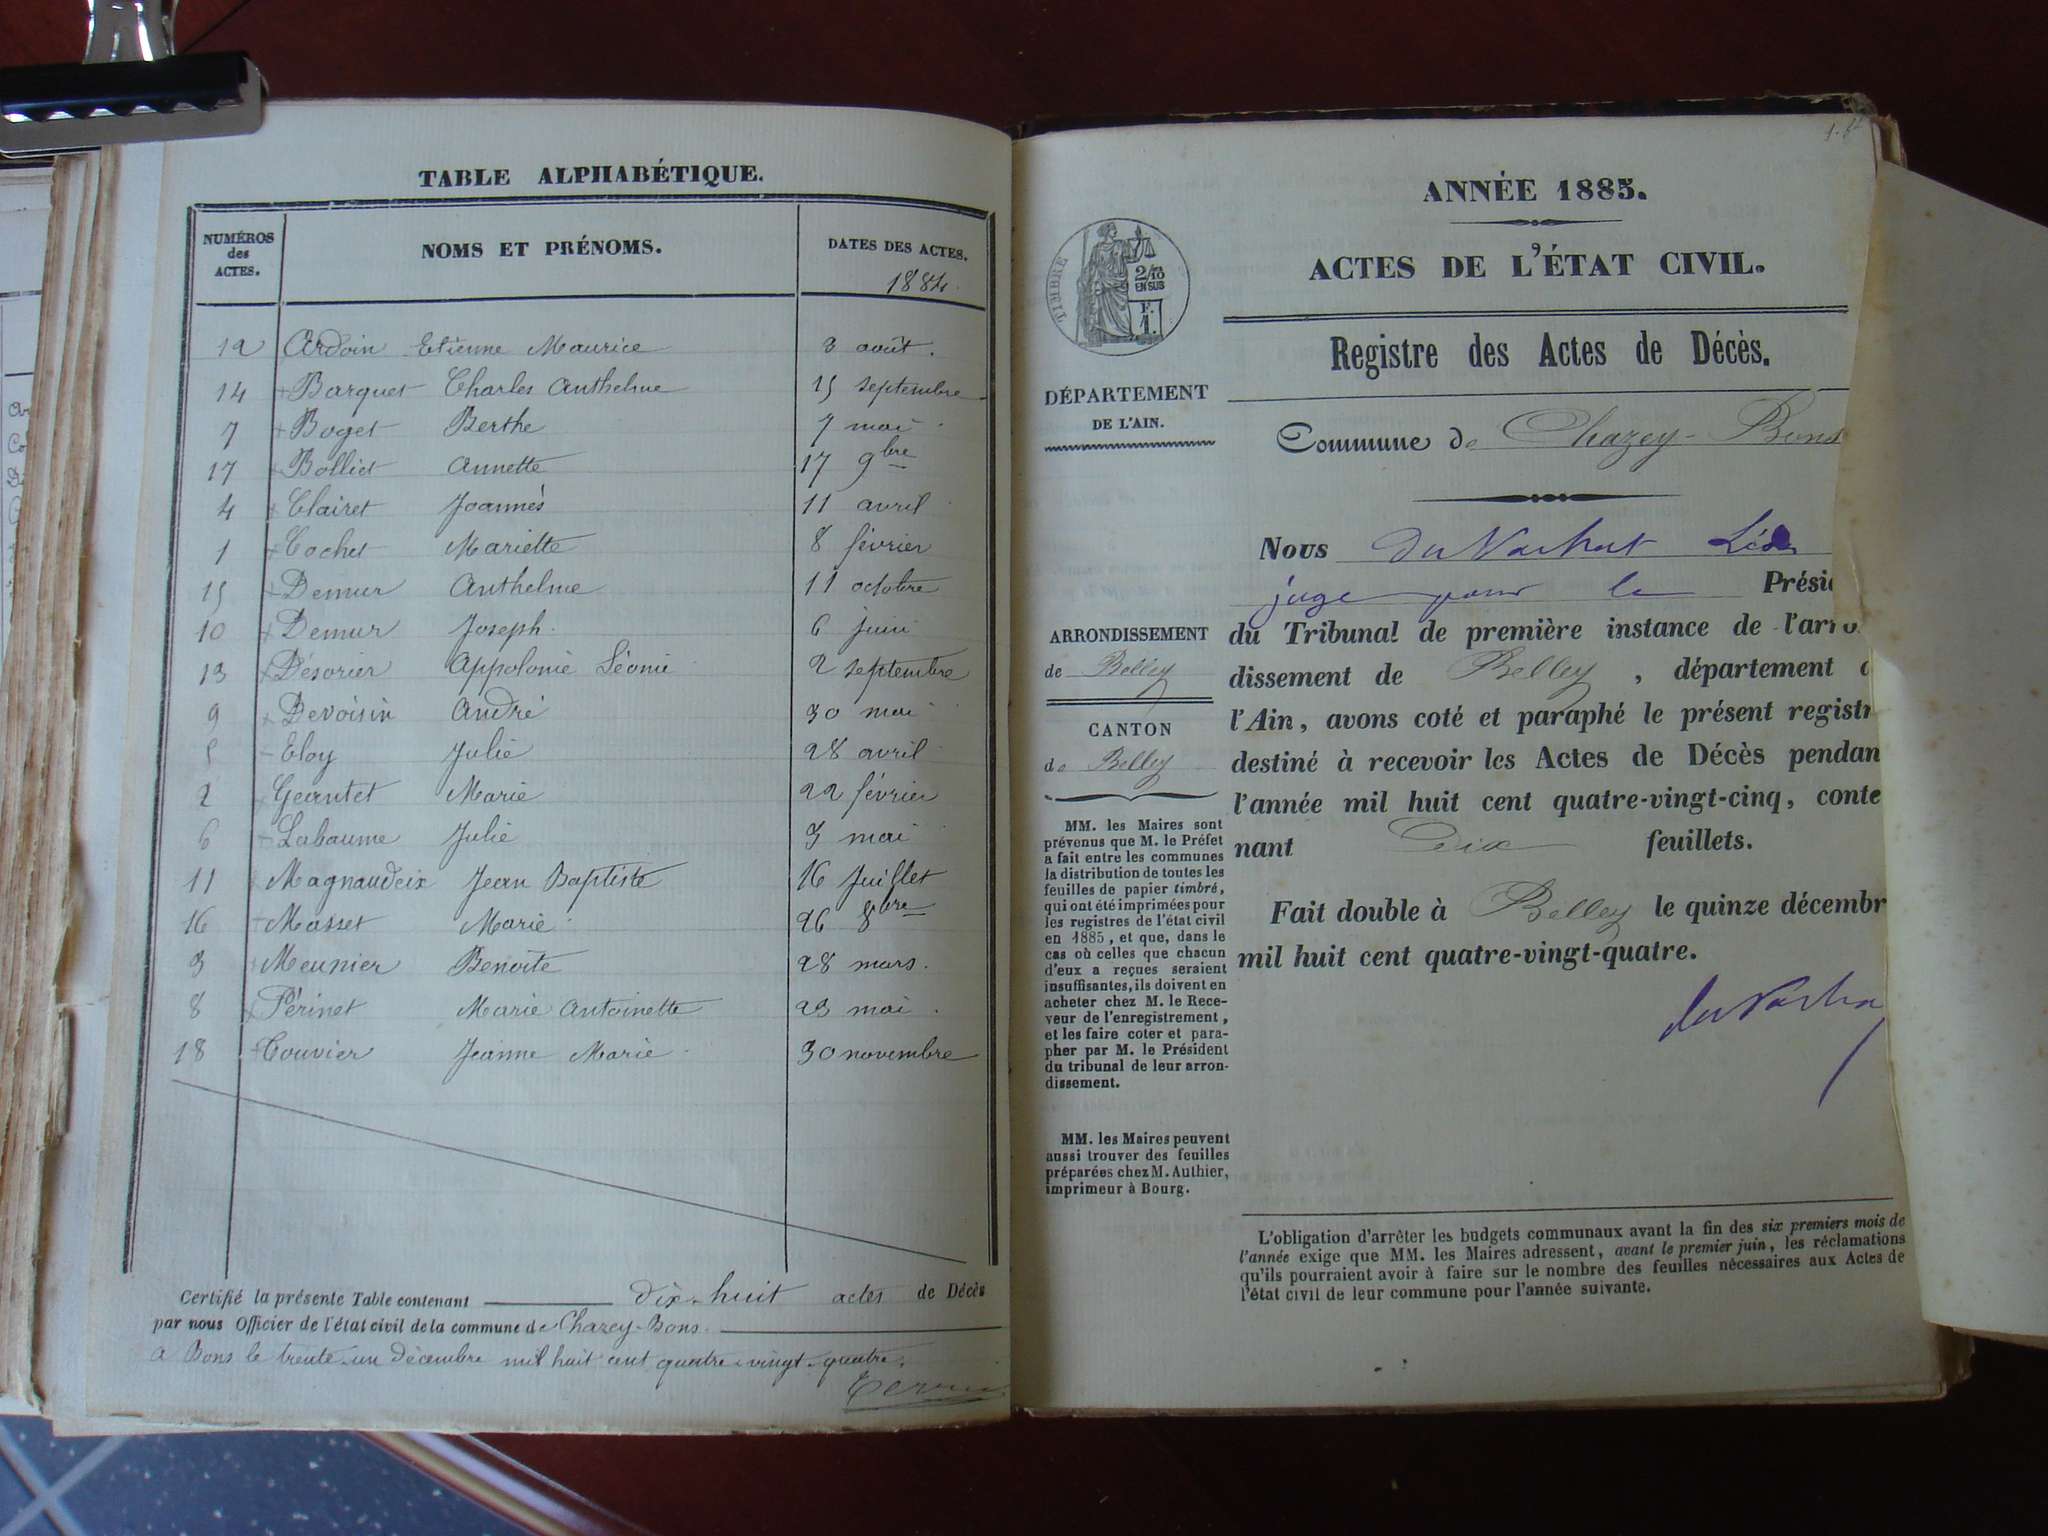 TABLE ALPHABÉTIQUE.
NUMÉROS des ACTES. NOMS ET PRÉNOMS. DATES DES ACTES.
1884.
12 Ardoin Etienne Maurice 3 août.
14 Barquet Charles Anthelme 15 septembre
7 Boget Berthe 7 mai
17 Bolliet Annette 17 9bre
4 Clairet Joannès 11 avril
1 Cochet Mariette 8 février
15 Demur Anthelme 11 octobre
10 Demur Joseph. 6 juin
13 Désorier Appolonie Léonie 2 septembre
9 Devoisin André 30 mai
5 Eloy Julie 28 avril
2 Geantet Marie 22 février
6 Labaume Julie 3 mai
11 Magnaudeix Jean Baptiste 16 Juillet
16 Masset Marie 26 8bre
3 Meunier Benoîte 28 mars.
8 Périnet Marie Antoinette 23 mai.
18 Couvier Jeanne Marie 30 novembre
Certifié la présente Table contenant dix-huit actes de Décès
par nous Officier de l'état civil de la commune de Chazey-Bons.
à Bons le trente-un décembre mil huit cent quatre-vingt-quatre.
ANNÉE 1885.
ACTES DE L'ÉTAT CIVIL.
Registre des Actes de Décès.
TIMBRE
2/10
EN SUS
F.
1.
DÉPARTEMENT
DE L'AIN.
ARRONDISSEMENT
de Belley
CANTON
de Belley
MM. les Maires sont
prévenus que M. le Préfet
a fait entre les communes
la distribution de toutes les
feuilles de papier timbré,
qui ont été imprimées pour
les registres de l'état civil
en 1885, et que, dans le
cas où celles que chacun
d'eux a reçues seraient
insuffisantes, ils doivent en
acheter chez M. le Rece-
veur de l'enregistrement,
et les faire coter et para-
pher par M. le Président
du tribunal de leur arron-
dissement.
MM. les Maires peuvent
aussi trouver des feuilles
préparées chez M. Authier,
imprimeur à Bourg.
Commune de Chazey-Bons
Nous
juge pour le Présid
du Tribunal de première instance de l'arron
dissement de Belley, département d
l'Ain, avons coté et paraphé le présent registr
destiné à recevoir les Actes de Décès pendan
l'année mil huit cent quatre-vingt-cinq, conte
nant Dix feuillets.
Fait double à Belley le quinze décembr
mil huit cent quatre-vingt-quatre.
L'obligation d'arrêter les budgets communaux avant la fin des six premiers mois de
l'année exige que MM. les Maires adressent, avant le premier juin, les réclamations
qu'ils pourraient avoir à faire sur le nombre des feuilles nécessaires aux Actes de
l'état civil de leur commune pour l'année suivante.